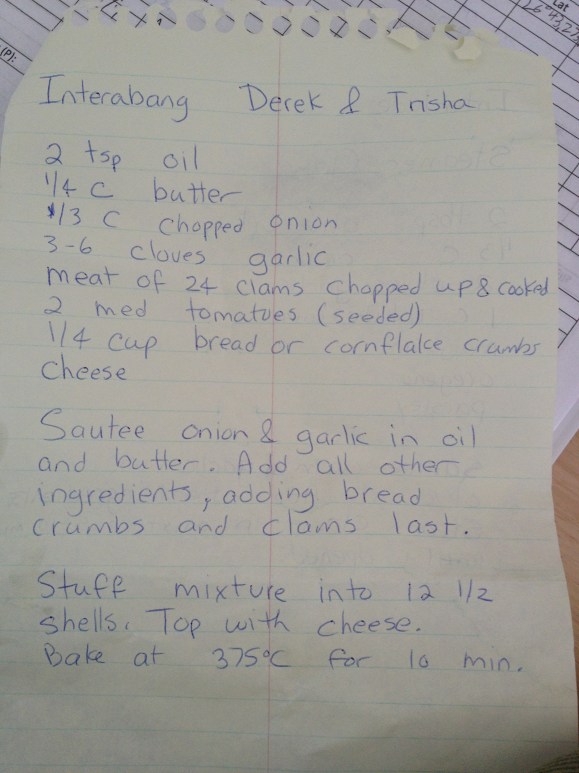 Interabang Derek & Trisha
2 tsp oil
1/4 C butter
1/3 C chopped onion
3-6 cloves garlic
meat of 24 clams chopped up & cooked
2 med tomatoes (seeded)
1/4 cup bread or cornflake crumbs
cheese
Sautee onion & garlic in oil
and butter. Add all other
ingredients, adding bread
crumbs and clams last.
Stuff mixture into 12 1/2
shells. Top with cheese.
Bake at 375°C for 10 min.